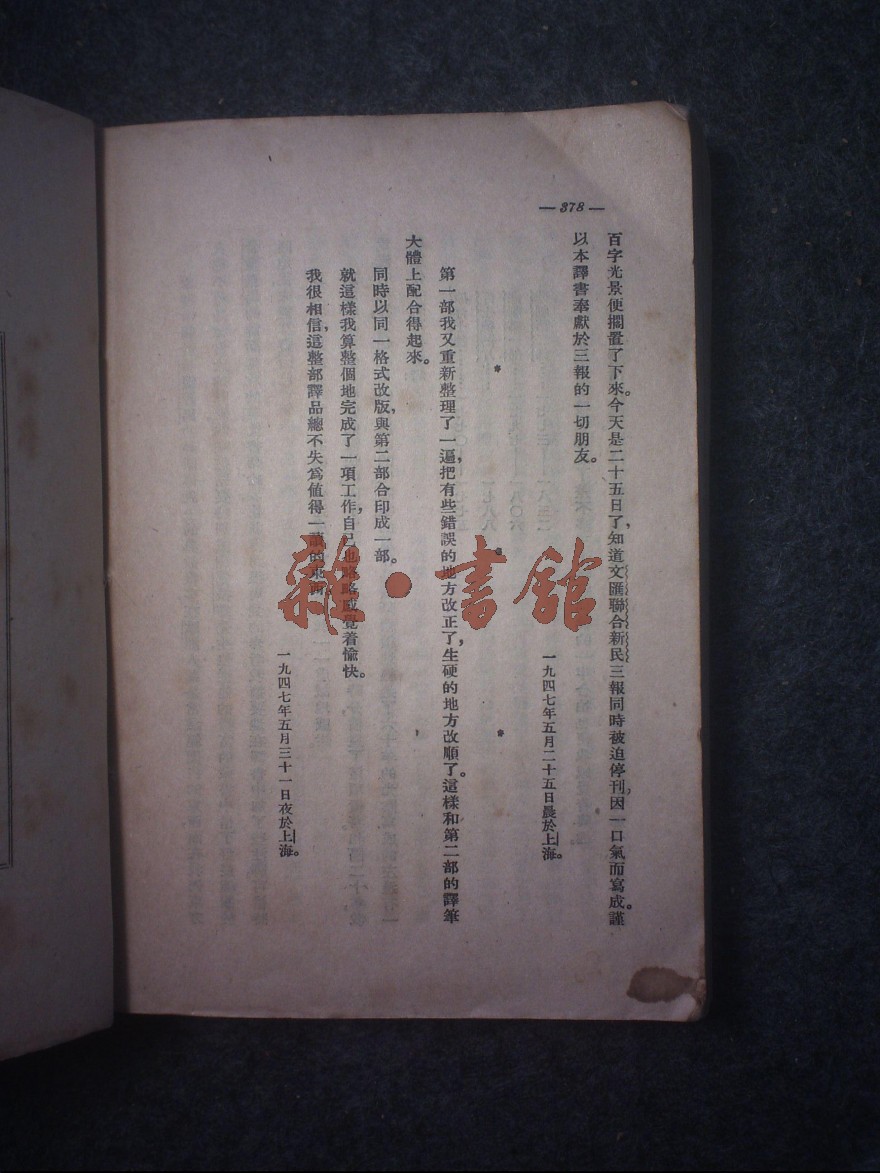 — 378 —
百字光景便擱置了下來。今天是二十五日了，知道文匯聯合新民三報同時被迫停刊，因一口氣而寫成。謹
以本譯書奉獻於三報的一切朋友。
一九四七年五月二十五日晨於上海。
第一部我又重新整理了一遍，把有些錯誤的地方改正了，生硬的地方改順了。這樣和第二部的譯筆
大體上配合得起來。
同時以同一格式改版，與第二部合印成一部。
就這樣我算整個地完成了一項工作，自己也略略感覺着愉快。
我很相信，這整部譯品總不失爲值得一讀的東西。
一九四七年五月三十一日夜於上海。
雜·書館